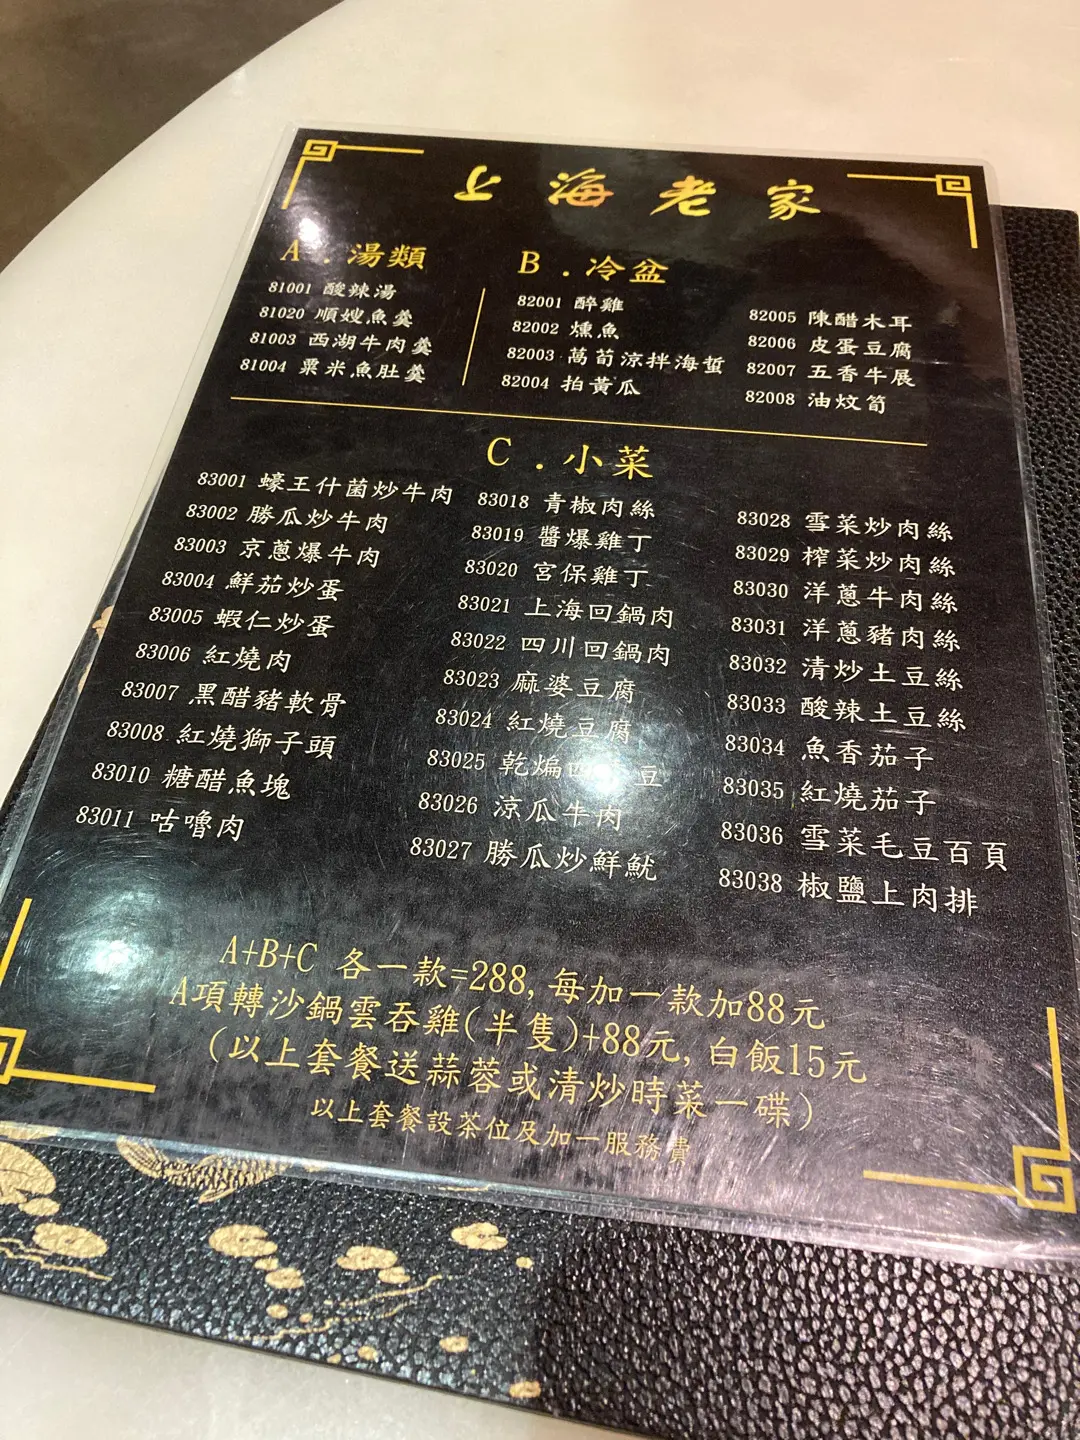 上海老家
A.湯類
81001 酸辣湯
81020 順嫂魚羹
81003 西湖牛肉羹
81004 粟米魚肚羹
B.冷盆
82001 醉雞
82002 燻魚
82003 萵筍涼拌海蜇
82004 拍黃瓜
82005 陳醋木耳
82006 皮蛋豆腐
82007 五香牛展
82008 油炆筍
C.小菜
83001 蠔王什菌炒牛肉
83002 勝瓜炒牛肉
83003 京蔥爆牛肉
83004 鮮茄炒蛋
83005 蝦仁炒蛋
83006 紅燒肉
83007 黑醋豬軟骨
83008 紅燒獅子頭
83010 糖醋魚塊
83011 咕嚕肉
83018 青椒肉絲
83019 醬爆雞丁
83020 宮保雞丁
83021 上海回鍋肉
83022 四川回鍋肉
83023 麻婆豆腐
83024 紅燒豆腐
83025 乾煸四豆
83026 涼瓜牛肉
83027 勝瓜炒鮮魷
83028 雪菜炒肉絲
83029 榨菜炒肉絲
83030 洋蔥牛肉絲
83031 洋蔥豬肉絲
83032 清炒土豆絲
83033 酸辣土豆絲
83034 魚香茄子
83035 紅燒茄子
83036 雪菜毛豆百頁
83038 椒鹽上肉排
A+B+C 各一款=288,每加一款加88元
A項轉沙鍋雲吞雞(半隻)+88元,白飯15元
(以上套餐送蒜蓉或清炒時菜一碟)
以上套餐設茶位及加一服務費